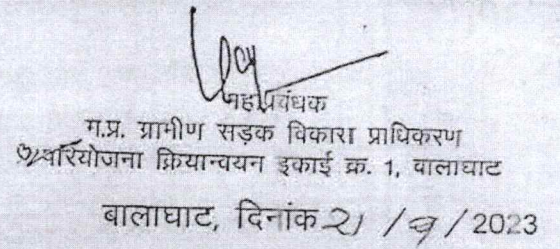 महाप्रबंधक
म.प्र. ग्रामीण सड़क विकास प्राधिकरण
परियोजना क्रियान्वयन इकाई क्र. 1, बालाघाट
बालाघाट, दिनांक 21 / 9 / 2023